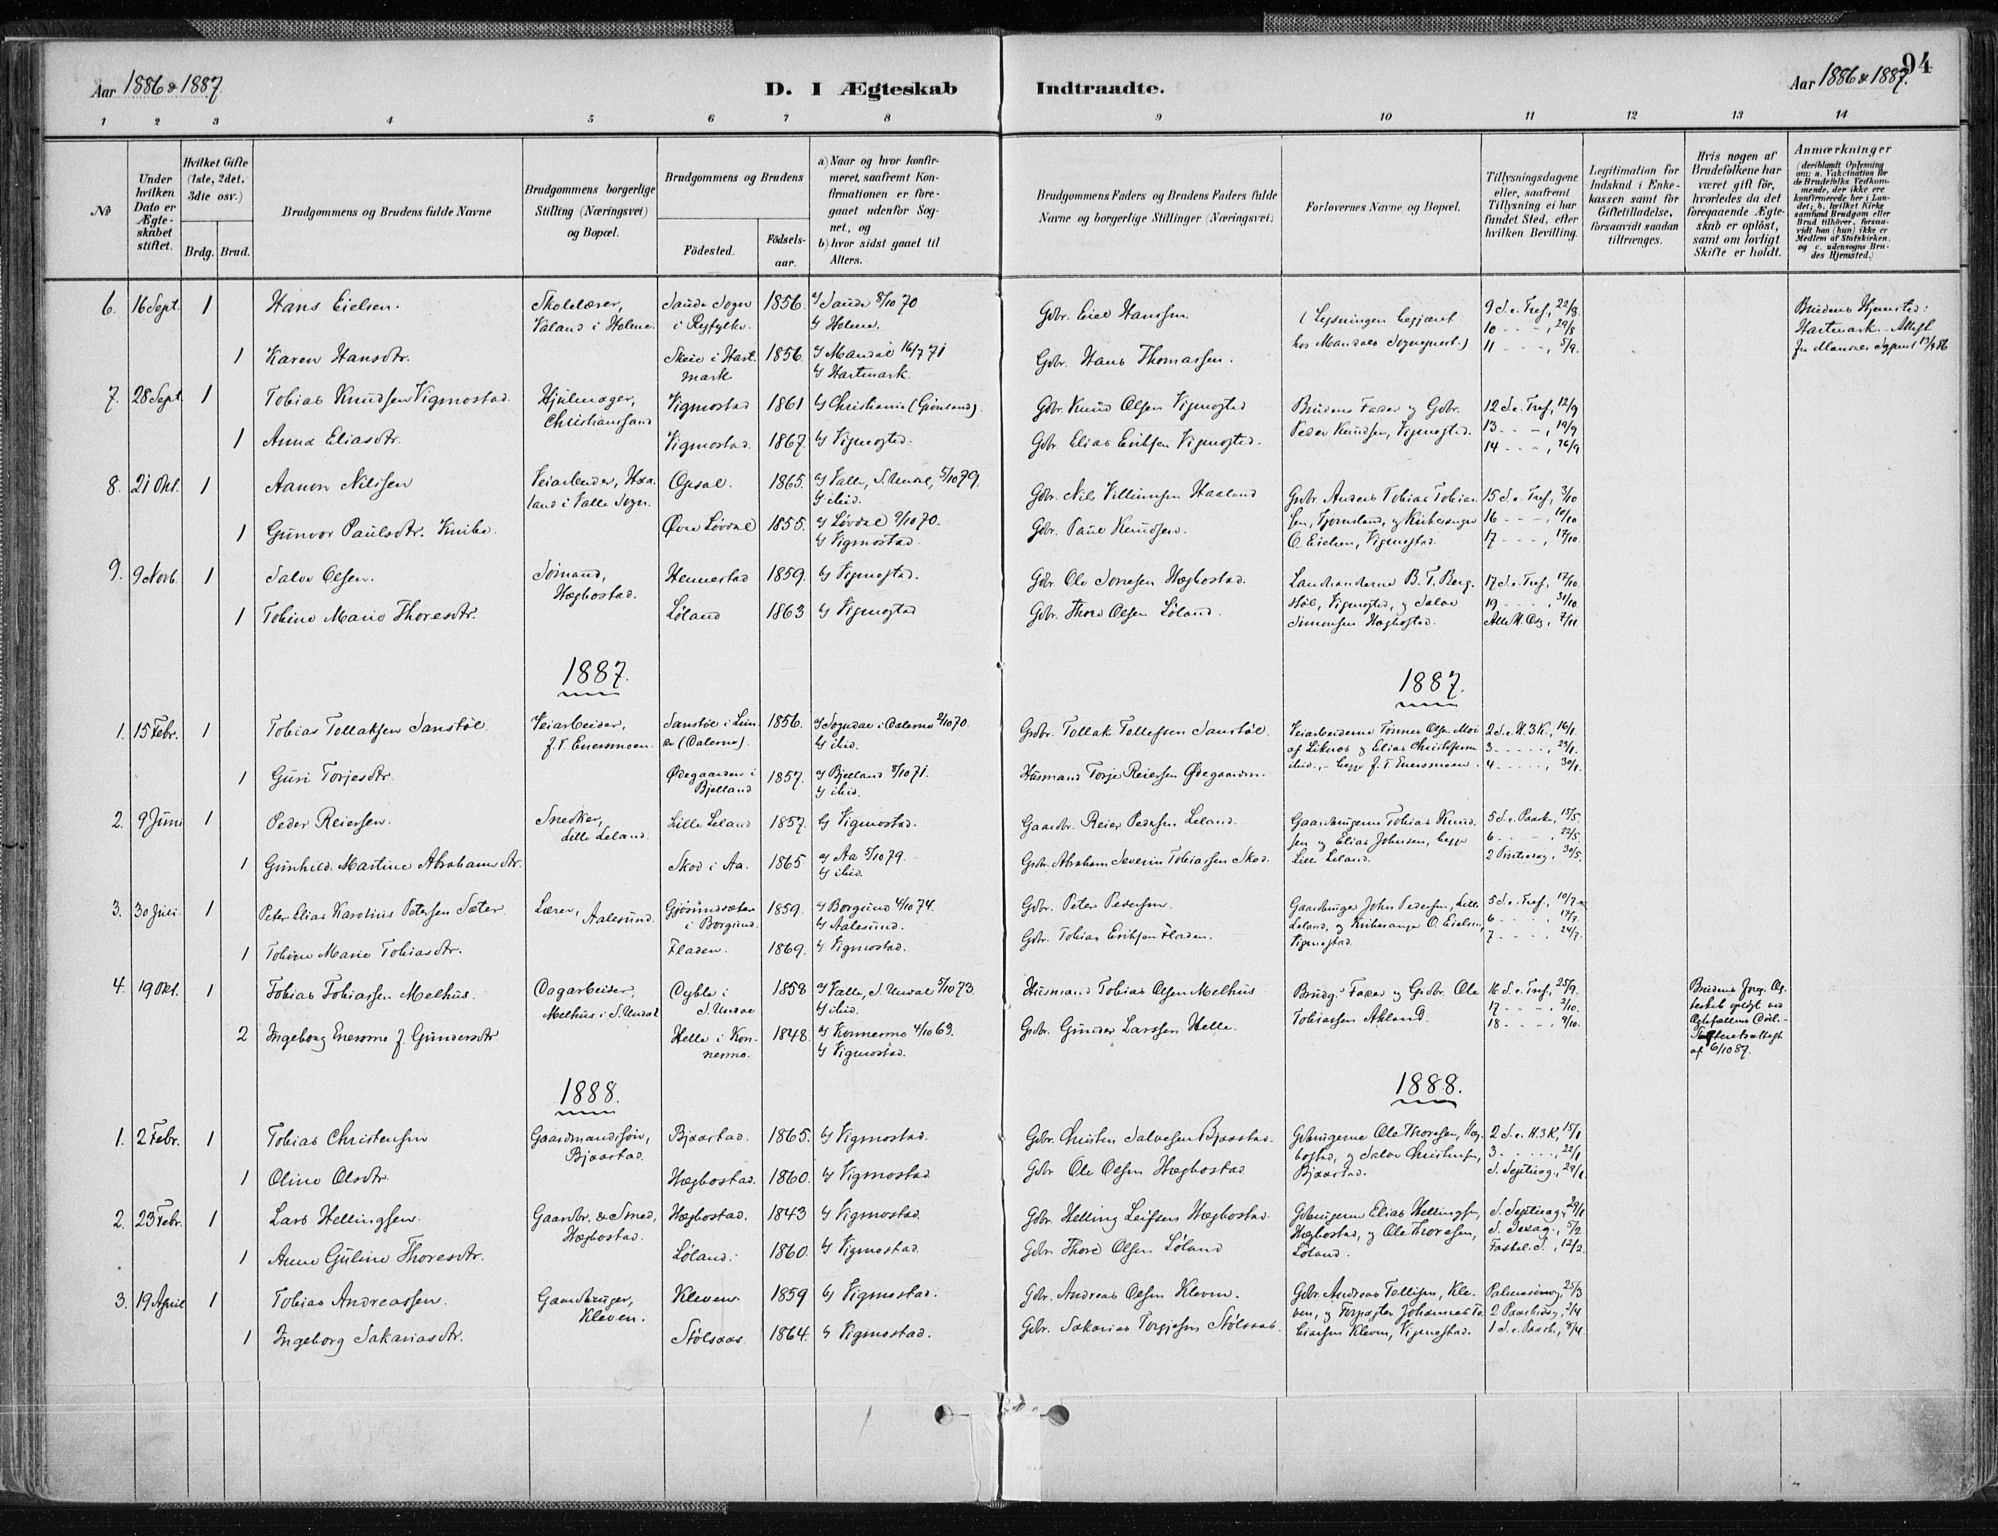 Aar 1886 & 1887.
D. I Ægteskab Indtraadte.
Aar 1886 & 1887.
94
1 2 3 4 5 6 7 8 9 10 11 12 13 14
No
Under hvilken Dato er Ægteskabet stiftet.
Hvilket Gifte (1ste, 2det, 3die osv.)
Brdg. Brud.
Brudgommens og Brudens fulde Navne
Brudgommens borgerlige Stilling (Næringsvei) og Bopæl.
Brudgommens og Brudens
Födested.
Födsels-aar.
a) Naar og hvor konfirmeret, saafremt Konfirmationen er foregaaet udenfor Sognet, og
b) hvor sidst gaaet til Alters.
Brudgommens Faders og Brudens Faders fulde Navne og borgerlige Stillinger (Næringsvei)
Forlovernes Navne og Bopæl.
Tillysningsdagene eller, saafremt Tillysning ei har fundet Sted, efter hvilken Bevilling.
Legitimation for Indskud i Enkekassen samt for Giftetilladelse, forsaavidt saadan tiltrænges.
Hvis nogen af Brudefolkene har været gift för, hvorledes da det foregaaende Ægteskab er oplöst, samt om lovligt Skifte er holdt.
Anmærkninger
6. 16 Sept. 1 Hans Eielsen. Skolelærer, Valand i Holme. Saude Sogn i Ryfylke. 1856. a/ Saude 8/10 70 b/ Holme. Gbr. Eiel Hanssen. (Lysningen begjæret hos Mandals Sognepræst.) 9 S. e. Tref., 22/8. 10 - - -, 29/8 11 - - -, 5/9. Brudens Hjemsted: Hartmark.
1 Karen Hansdtr. Skeie i Hartmark 1856. a/ Mandal 16/7 71 b/ Hartmark. Gbr. Hans Thomassen.
7. 28 Sept 1 Tobias Knudsen Vigmostad. Hjulmager, Christianssand Vigmostad 1861 b/ Christiania (Grønland). Gbr. Knud Olsen Vigmostad Brudens Fader og Gbr. Peder Knudsen, Vigmostad. 12 S. e. Tref., 12/9 13 - - -, 19/9 14 - - -, 26/9
1 Anna Eliasdtr. Vigmostad. 1867. b/ Vigmostad. Gbr. Elias Eriksen Vigmostad.
8. 21 Okt. 1 Aanon Nilssen Veiarbeider, Haaland i Valle Sogn. Opsal. 1865. a/ Valle, S. Undal, 5/10 79. b/ ibid. Gbr. Nils Villumsen Haaland Gbr. Anders Tobias Tobiassen, Tjomsland, og Kirkesanger O. Eielsen, Vigmostad. 15 S. e. Tref., 3/10 16 - - -, 10/10 17 - - -, 17/10.
1 Gunvor Paulsdtr. Øvre Løvdal 1855. a/ Løvdal 9/10 70. b/ Vigmostad. Gbr. Paul Knudsen.
9. 9 Novb. 1 Salve Olsen. Sømand, Hægbostad. Hennestad 1859. b/ Vigmostad. Gbr. Ole Hægbostad. Landhanderne B. T. Bergstøl, Vigmostad, og Salve Simonsen Hægbostad. 17 S. e. Tref., 17/10. 19 - - -, 31/10. Alle H. Dag, 7/11.
1 Tobine Marie Thoresdtr. Løland 1863 b/ Vigmostad Gbr. Thore Olsen Løland.
1887. 1887.
1. 15 Febr. 1 Tobias Tollaksen Sanstøl Veiarbeider, f. T. Enersmoen. Sanstøl i (Dalerne). 1856. a/ Sogndal i Dalerne 2/10 70. b/ ibid. Gbr. Tollak Tollefsen Sanstøl Veiarbeiderne Tønnes Olsen Moi af Liknes og Elias Christensen ibid., - begge f. T. Enersmoen. 2 S. e. H. 3 K., 16/1. 3 - - - -, 23/1. 4 - - - -, 30/1.
1 Guri Torjesdtr. Ødegaarden i Bjelland 1857. a/ Bjelland 8/10 71. b/ ibid. Husmand Torje Reiersen Ødegaarden.
2. 9 Juni 1 Peder Reiersen. Snedker, Lille Leland. Lille Leland 1857. b/ Vigmostad. Gaardbr. Reier Pedersen Leland. Gaardbrugerne Tobias Knudsen og Elias Johnsen, begge Lille Leland. 5 S. e. Paaske, 15/5. 6 - - -, 22/5. 2 Pintsedag, 30/5.
1 Gunhild Martine Abrahamsdtr. Skod i Aa. 1865 a/ Aa 5/10 79. b/ ibid. Gbr. Abraham Severin Tobiassen Skod.
3. 30 Juli. 1 Peter Elias Karolius Petersen Sæter. Lærer, Aalesund. Gjøsundsæter i Borgund. 1859. a/ Borgund 4/10 74. b/ Aalesund. Gbr. Peter Pedersen. Gaardbruger John Pedersen, Lille Leland, og Kirkesanger O. Eielsen, Vigmostad. 5 S. e. Tref., 10/7. 6 - - - -, 17/7. 7 - - - -, 24/7.
1 Tobine Marie Tobiasdtr. Fladen. 1869. b/ Vigmostad. Gbr. Tobias Eriksen Fladen.
4. 19 Okt. 1 Tobias Tobiassen Melhus. Dagarbeider, Melhus i S. Undal Dyble i S. Undal 1858 a/ Valle, S. Undal 5/10 73. b/ ibid. Husmand Tobias Olsen Melhus Brudg. Fader og Gbr. Ole Tobiassen Akland. 16 S. e. Tref., 25/9. 17 - - - -, 2/10. 18 - - - -, 9/10. Brudens forrige Ægteskab opløst ved Ægtefællens Død. - Skifteretsattest af 6/10 87.
2 Ingeborg Enersmo f. Gundersdtr Helle i Konnesmo. 1848. a/ Konnesmo 4/10 63. b/ Vigmostad. Gbr. Gunder Larssen Helle.
1888. 1888.
1. 2 Febr. 1 Tobias Christensen Gaardmandssøn, Bjaastad. Bjaastad. 1865. b/ Vigmostad. Gbr. Christen Salvesen Bjaastad. Gbrugerne Ole Thoresen, Hægbostad, og Salve Christensen, Bjaastad. 2 S. e. H. 3 K., 15/1 3 - - - -, 22/1 S. Septuag., 29/1
1 Oline Olsdtr. Hægbostad. 1860. b/ Vigmostad Gbr. Ole Olsen Hægbostad
2. 23 Febr. 1 Lars Hellingsen. Gaardbr. & Smed, Hægbostad. Hægbostad. 1843 b/ Vigmostad. Gbr. Helling Leifsen Hægbostad. Gbrugerne Elias Hellingsen, Hægbostad, og Ole Thoresen, Løland. S. Septuag., 29/1 S. Sexag., 5/2 Fastel. S., 12/2.
1 Anne Guline Thoresdtr. Løland. 1860. b/ Vigmostad. Gbr. Thore Olsen Løland
3. 19 April 1 Tobias Andreassen. Gaardbruger, Kleven. Kleven 1859 b/ Vigmostad. Gbr. Andreas Olsen Kleven. Gbr. Andreas Tollisen, Kleven, og Forpagter Johannes Tobiassen Kleven, Vigmostad. Palmesøndag, 25/3 2 Paaskedag, 2/4 1 S. e. Paaske, 8/4
1 Ingeborg Sakariasdtr. Stølsaas. 1864. b/ Vigmostad. Gbr. Sakarias Torjesen Stølsaas.